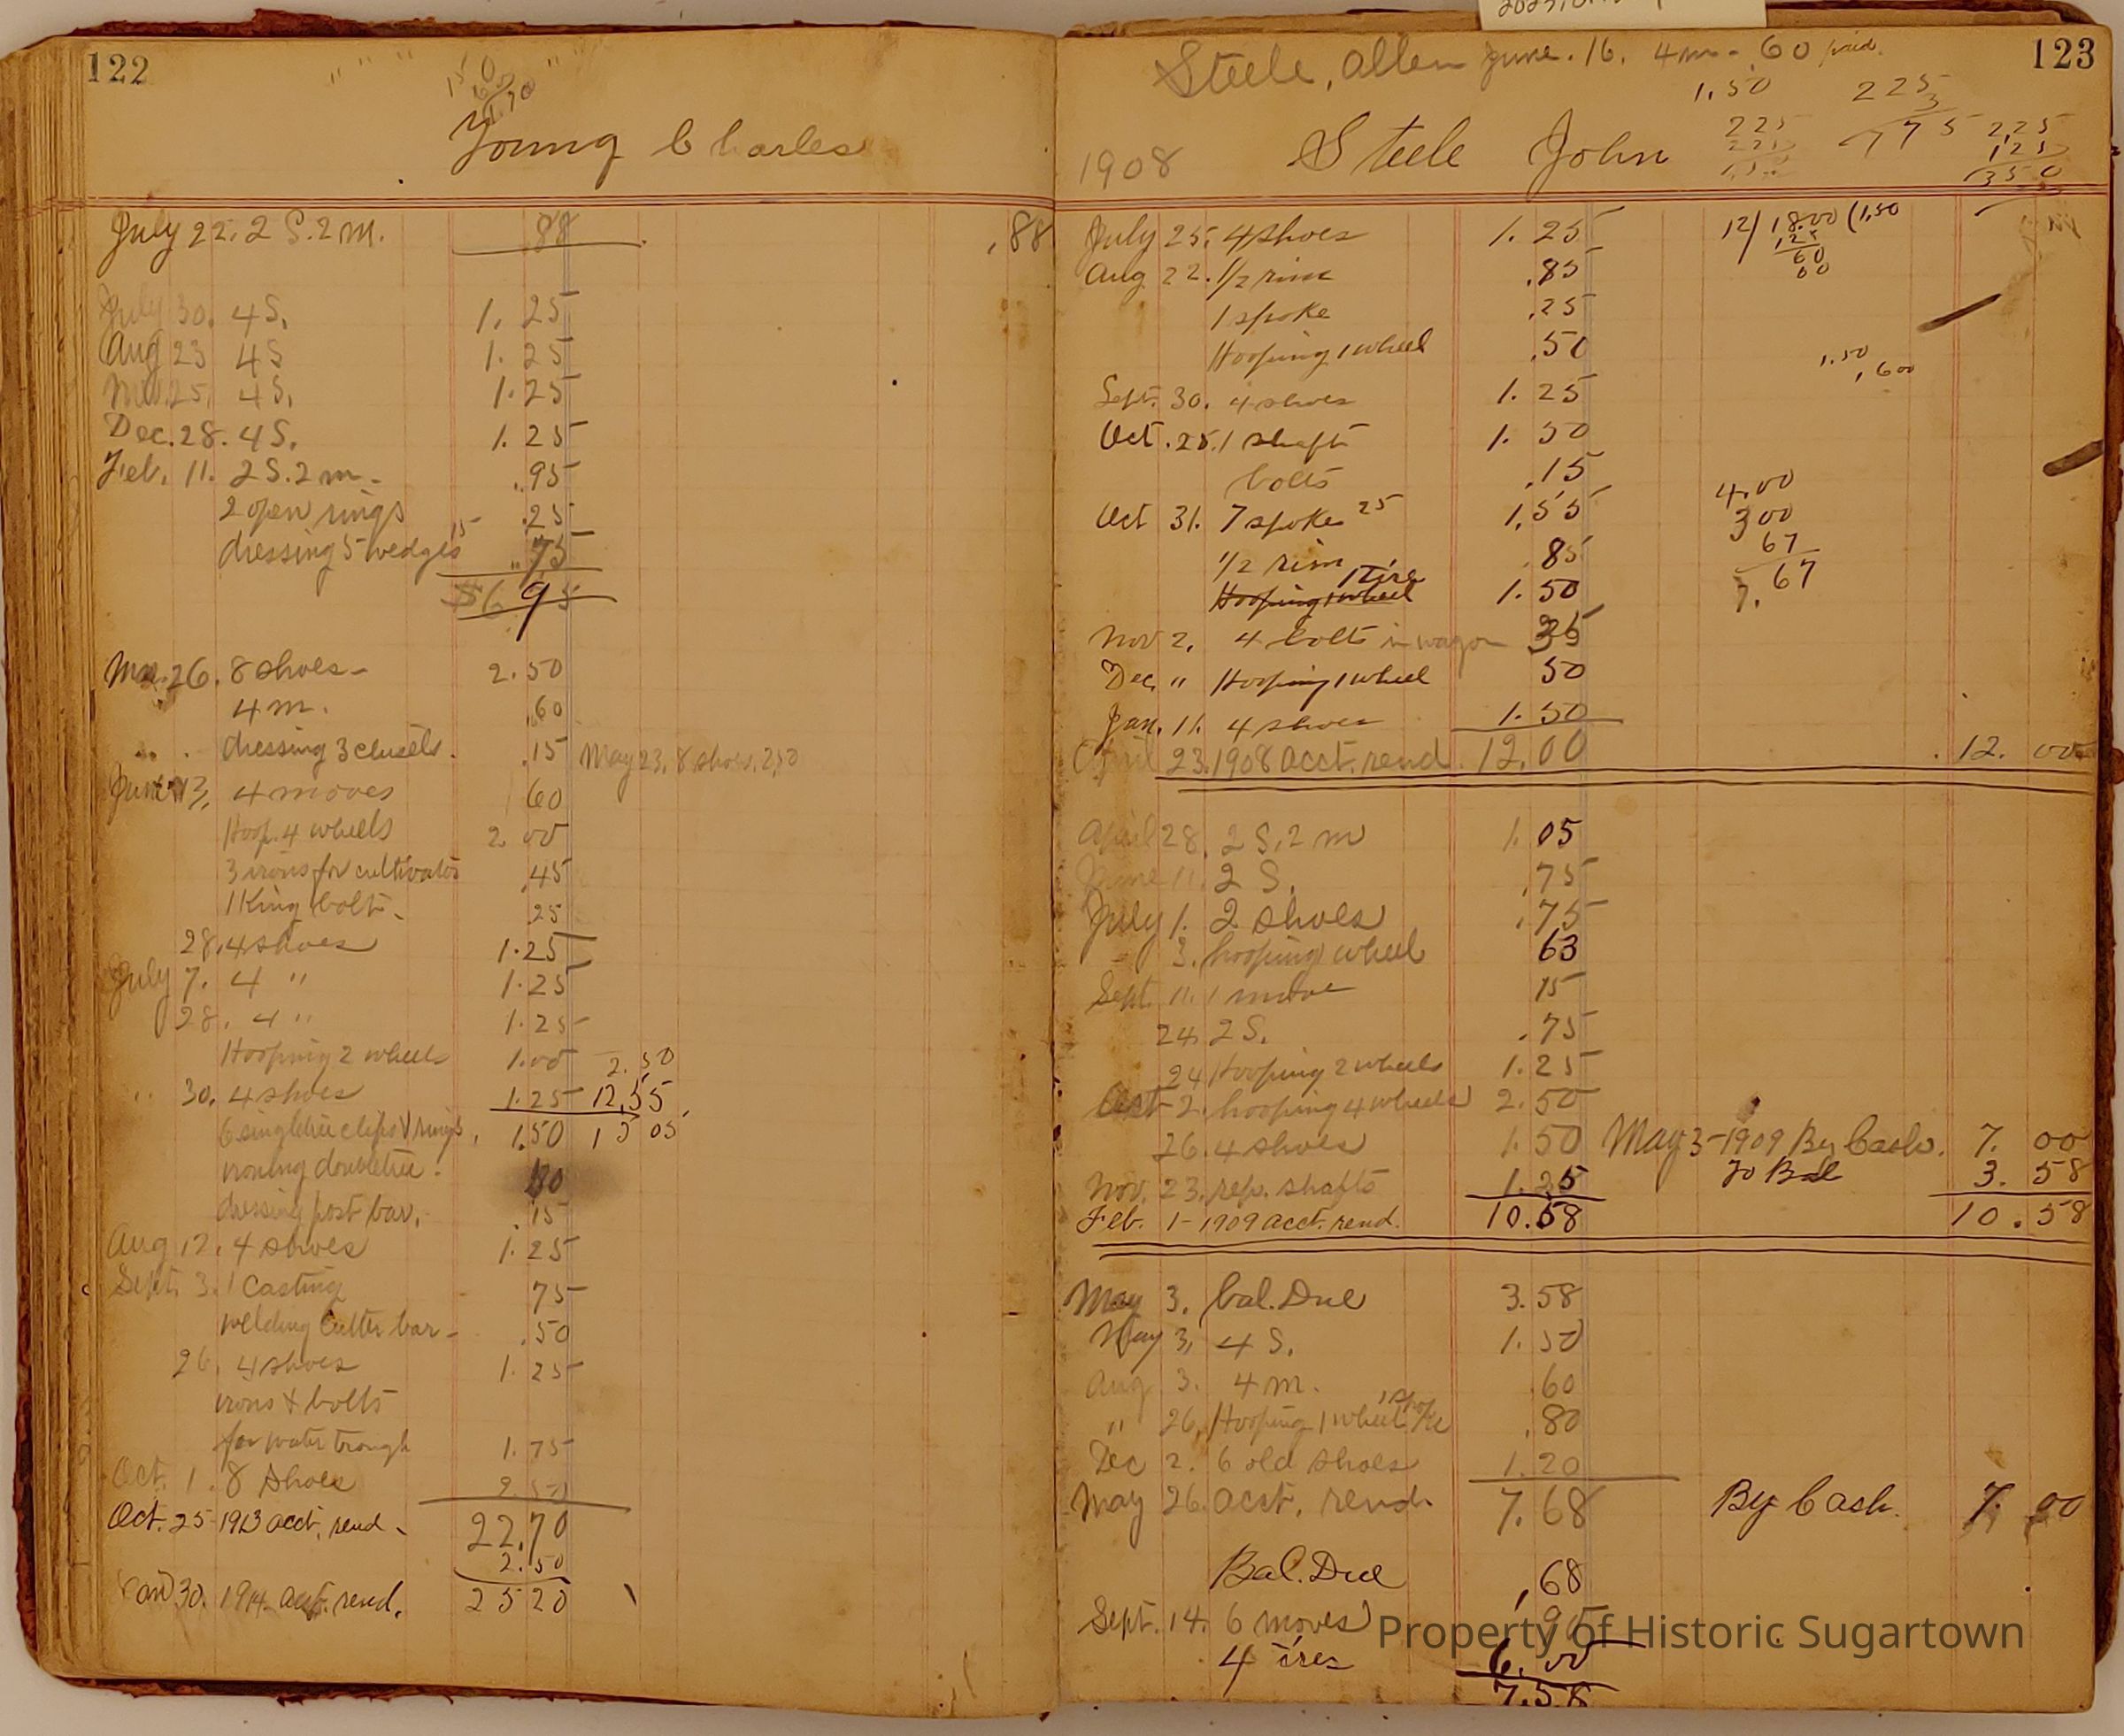 122
" " "
Young Charles
July 22. 2 S. 2 m. .88 .88
July 30. 4 S. 1.25
Aug 23 4 S 1.25
Nov. 25, 4 S. 1.25
Dec. 28. 4 S. 1.25
Feb. 11. 2 S. 2 m - .95
2 open rings .25
dressing 5 wedges 15 .75
$6 95
Mar. 26. 8 shoes - 2.50
4 m. .60
dressing 3 chisels. .15 May 23. 8 shoes. 2,50
June 13, 4 moves 60
Hoop. 4 wheels 2.00
3 irons for cultivator .45
1 King bolt - .25
28. 4 shoes 1.25
July 7. 4 " 1.25
28. 4 " 1.25
Hooping 2 wheels 1.00 2.50
" 30. 4 shoes 1.25 12,55
6 singletree clips & rings, 1.50 15 05
ironing doubletree.
dressing post bar, .15
Aug 12. 4 shoes 1.25
Sept. 3. 1 Casting 75
welding Cutter bar - .50
26. 4 shoes 1.25
irons & bolts
for water trough 1.75
Oct. 1. 8 shoes 2.50
Oct. 25 1913 acct. rend - 22.70
2.50
Jan 30. 1914 acct. rend. 25 20
123
Steele, Allen June. 16. 4 m - .60 paid.
1.50 225
1908 Steele John
225
2,25
1 25
3 50
July 25. 4 shoes 1.25 12/18.00(1,50
Aug 22. 1/2 rim .85
1 spoke .25
Hooping 1 wheel .50
1.50
Sept. 30. 4 shoes 1.25
Oct. 25. 1 shaft 1.50
bolts .15
4.00
Oct 31. 7 spokes 25 1,55 3 00
1/2 rim .85 67
1 Tire 7.67
Hooping 1 wheel 1.50
Nov 2. 4 bolts in wagon
Dec. " Hooping 1 wheel 50
Jan. 11. 4 shoes 1.50
April 23. 1908 acct. rend. 12.00 12.00
April 28. 2 S. 2 m 1.05
June 11. 2 S. .75
July 1. 2 shoes .75
3. hooping 1 wheel 63
Sept. 11. 1 move 15
24. 2 S. .75
24 Hooping 2 wheels 1.25
Oct 2. hooping 4 wheels 2.50
26. 4 shoes 1.50 May 3 - 1909 By Cash. 7.00
Nov. 23. rep. shafts 1.25 To Bal 3.58
Feb. 1 - 1909 acct. rend. 10.58 10.58
May 3. Bal. Due 3.58
May 3, 4 S. 1.50
Aug 3. 4 m. .60
" 26, Hooping 1 wheel 1 spoke .80
Dec 2. 6 old shoes 1.20
May 26. acct. rend. 7.68 By Cash. 7.00
Bal. Due .68
Sept. 14. 6 moves .90
4 tires 6.00
7.58
Property of Historic Sugartown